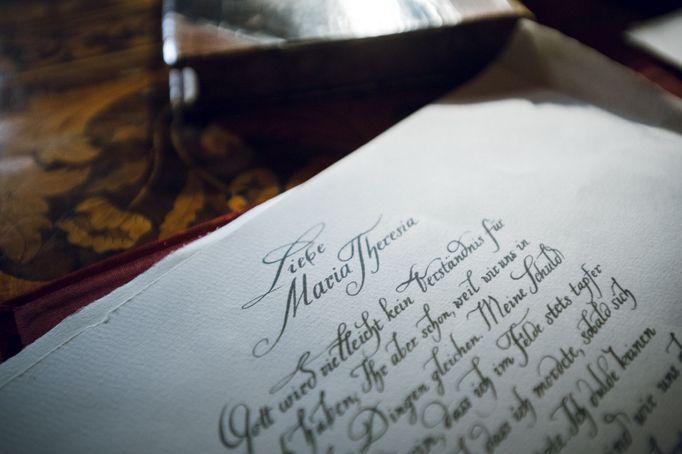 Liebe
Maria Theresia
Gott wird vielleicht kein Verständnis für
haben, Ihr aber schon, weil wir uns in
Dingen gleichen. Meine Schuld
dass ich im Felde stets tapfer
dass ich mordete, sobald sich
Ich duldete keinen
und wie uns